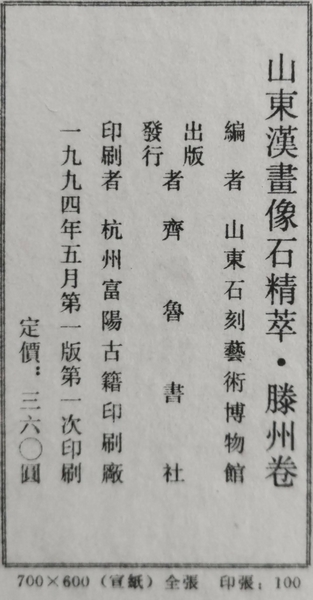 山東漢畫像石精萃·滕州卷
編者 山東石刻藝術博物館
出版發行者 齊魯書社
印刷者 杭州富陽古籍印刷廠
一九九四年五月第一版第一次印刷
定價：三六〇圓
700×600（宣紙）全張 印張：100